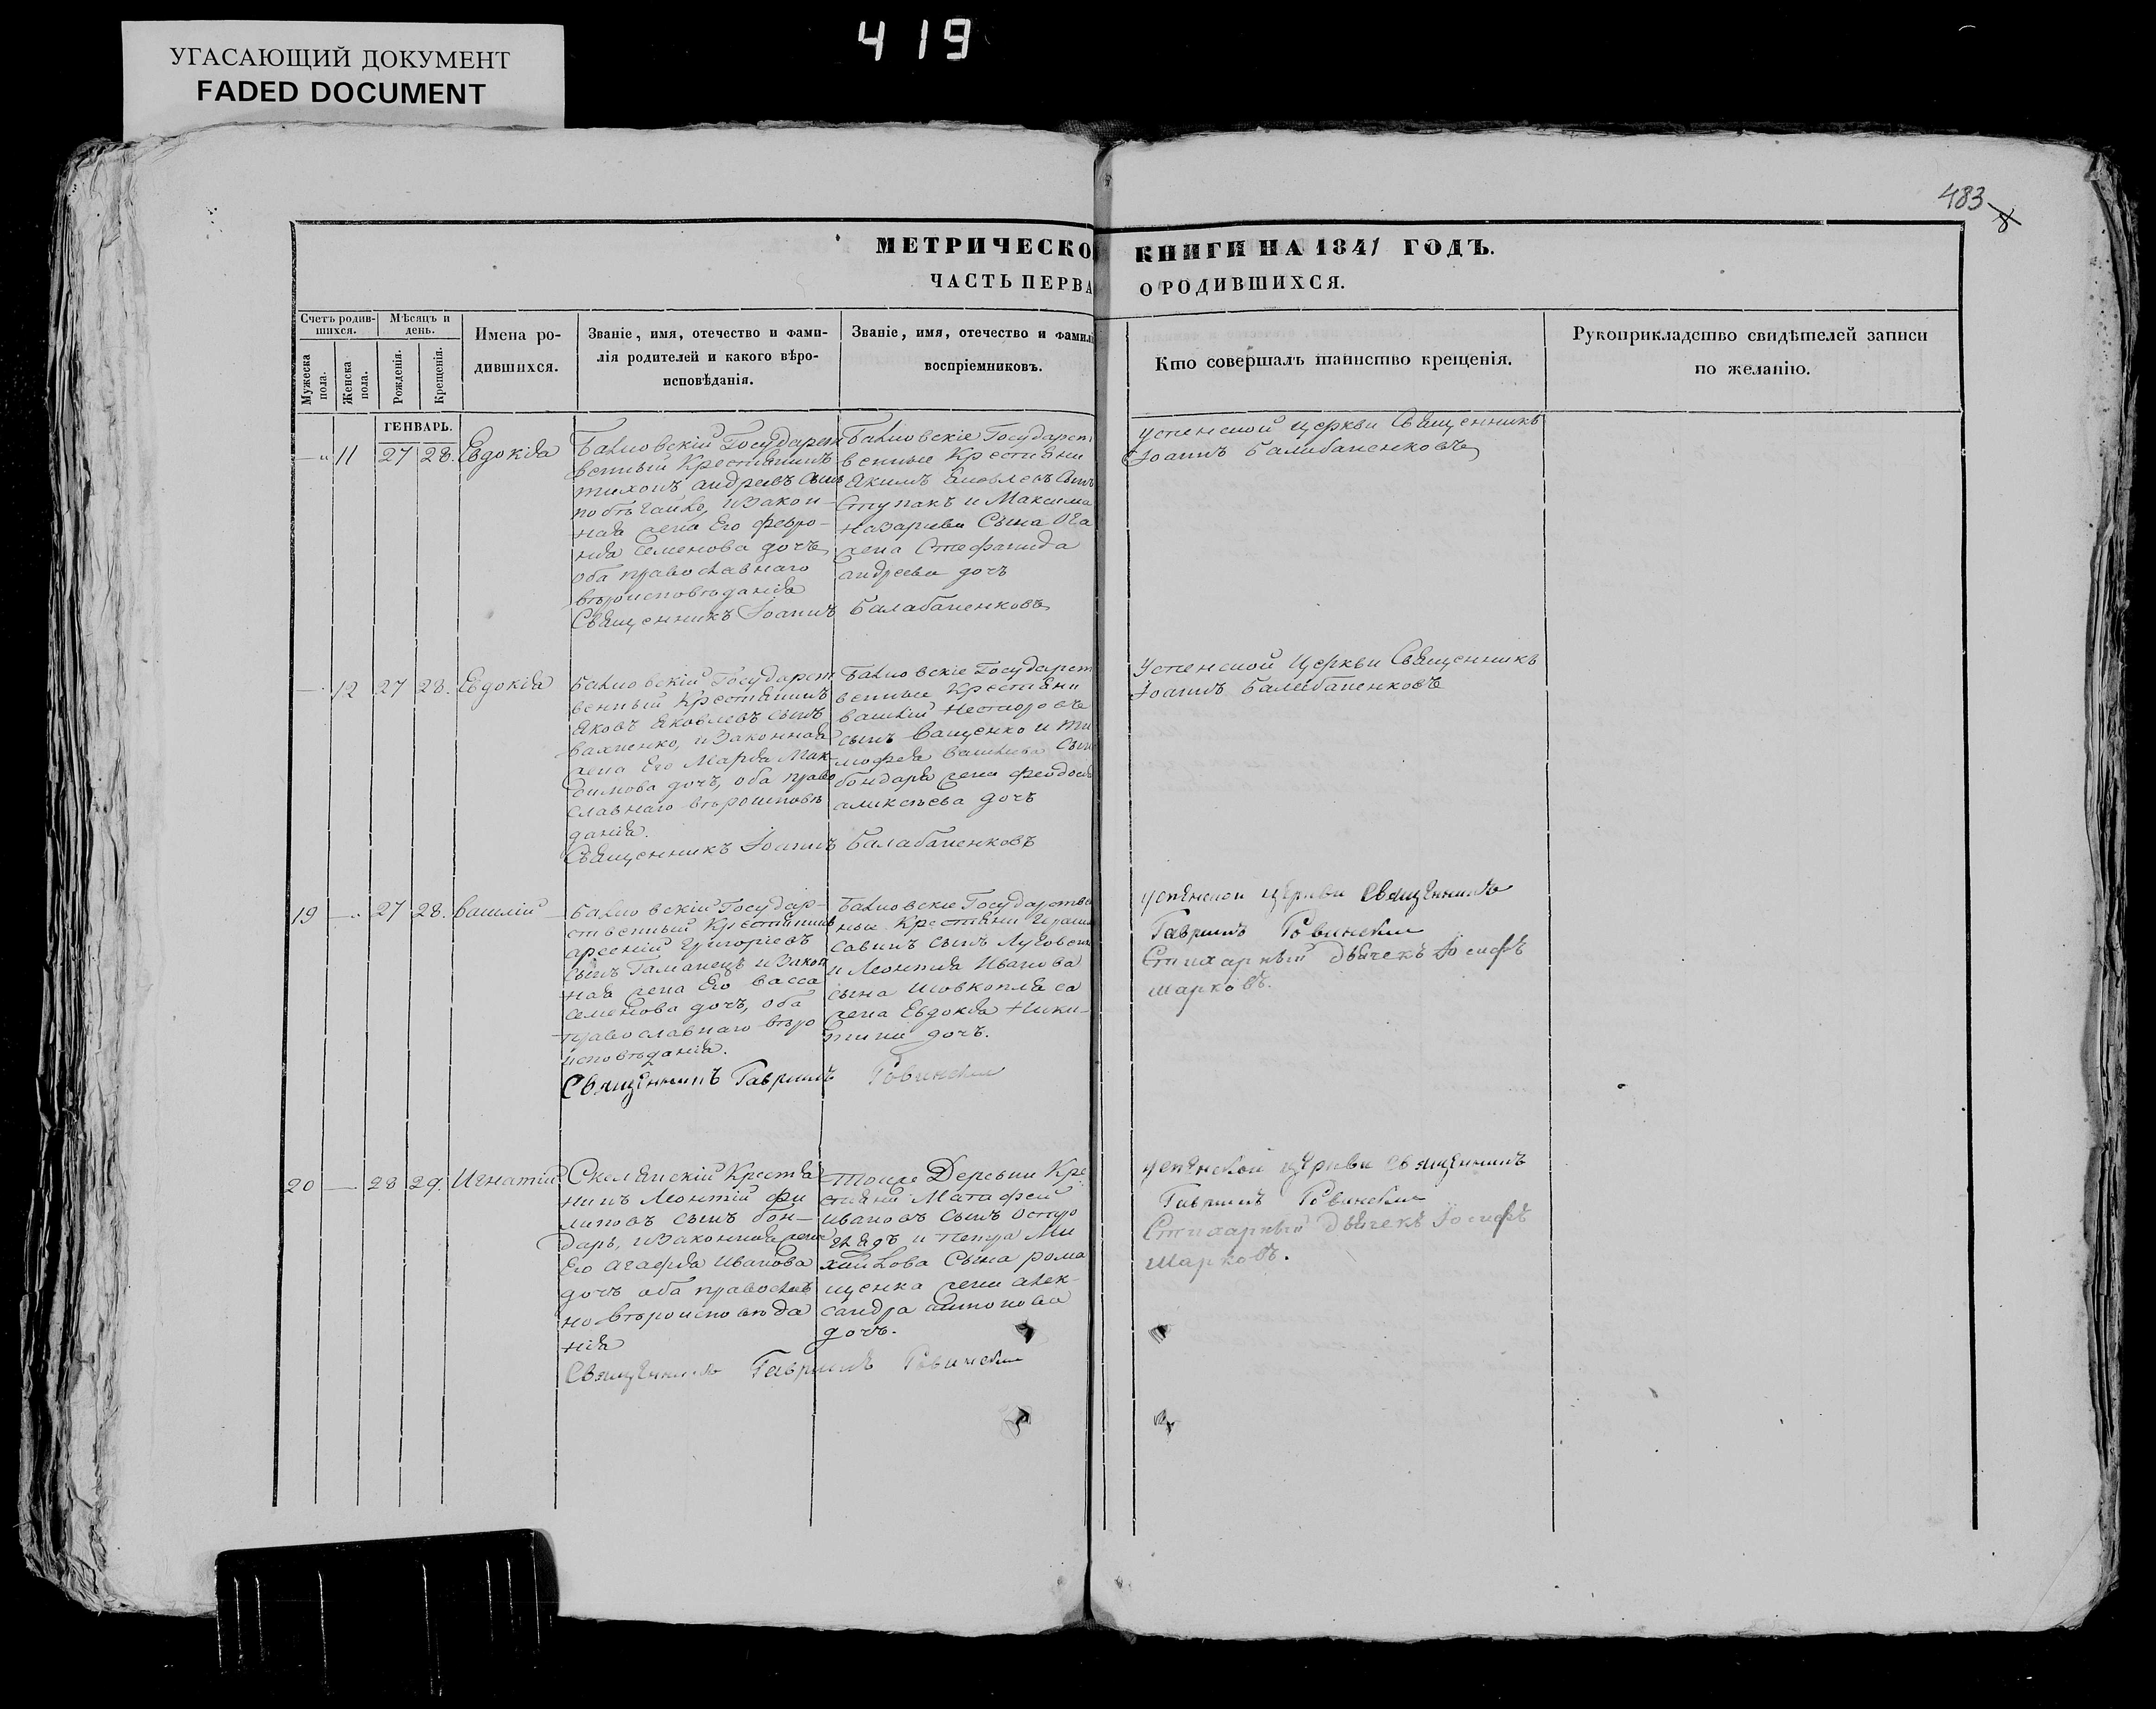 419
УГАСАЮЩИЙ ДОКУМЕНТ
FADED DOCUMENT
483
8
МЕТРИЧЕСКО КНИГИ НА 1841 ГОДЪ.
ЧАСТЬ ПЕРВА О РОДИВШИХСЯ.
Счетъ родив-
шихся.
Мужеска
пола.
Женска
пола.
Мѣсяцъ и
день.
Рожденія.
Крещенія.
Имена ро-
дившихся.
Званіе, имя, отечество и фами-
лія родителей и какого вѣро-
исповѣданія.
Званіе, имя, отечество и фамил
воспріемниковъ.
Кто совершалъ таинство крещенія.
Рукоприкладство свидѣтелей записи
по желанію.
ГЕНВАРЬ.
11 27 28. Евдокія
Государст
венный Крестянинъ
тихонъ андреевъ сынъ
побѣгайло, изакон-
ная жена Его февро-
нія Семенова дочъ
оба православнаго
вѣроисповѣданія
Священникъ Іоаннъ Балабаненковъ
Государст
венные Крестяни
Якимъ Яковлевъ Сынъ
Ступакъ и Максима
назариева Сына
жена Стефанида
андреева дочъ
успенской церкви Священникъ
Іоаннъ Балабаненковъ
12 27 28. Евдокія
Государст
венный Крестянинъ
Яковъ Яковлевъ сынъ
изаконная
жена Его Марфа Мак-
симова дочъ, оба право
славнаго вѣроисповѣ
данія.
Священникъ Іоаннъ Балабаненковъ
Государст
венные Крестяни
василій Несторовъ
сынъ Ващенко и ти
мофея василиева сына
бондаря жена феодосія
аликсѣева дочъ
Успенской Церкви Священникъ
Іоаннъ Балабаненковъ
19 27 28. василий
Государ-
ственный Крестянинъ
арсеній Григоріевъ
сынъ Гаманецъ изакон
ная жена Его васса
семенова дочъ, оба
православнаго вѣро
исповѣданія.
Священникъ Гавриилъ Ровинский
Государстве
ные Крестяни
савинъ сынъ
и Леонтия Иванова
сына Шовкопляса
жена Евдокія Ники-
тина дочъ.
успенской церкви священникъ
Гавриилъ Ровинский
Стихарный дьячекъ Іосифъ
Марковъ.
20 28 29. Игнатий
Крестя
нинъ Леонтій фи
липовъ сынъ бон-
даръ, изаконная жена
Его агафія Иванова
дочъ оба православ
но вѣроисповѣда
нія
Священникъ Гавриилъ Ровинский
Тоиже Деревни Кре
стяни Матафей
ивановъ Сынъ
и петра Ми
хайлова Сына рома
щенка жена алек-
сандра антонова
дочъ.
успенской церкви священникъ
Гавриилъ Ровинский
Стихарный дьячекъ Іосифъ
Марковъ.